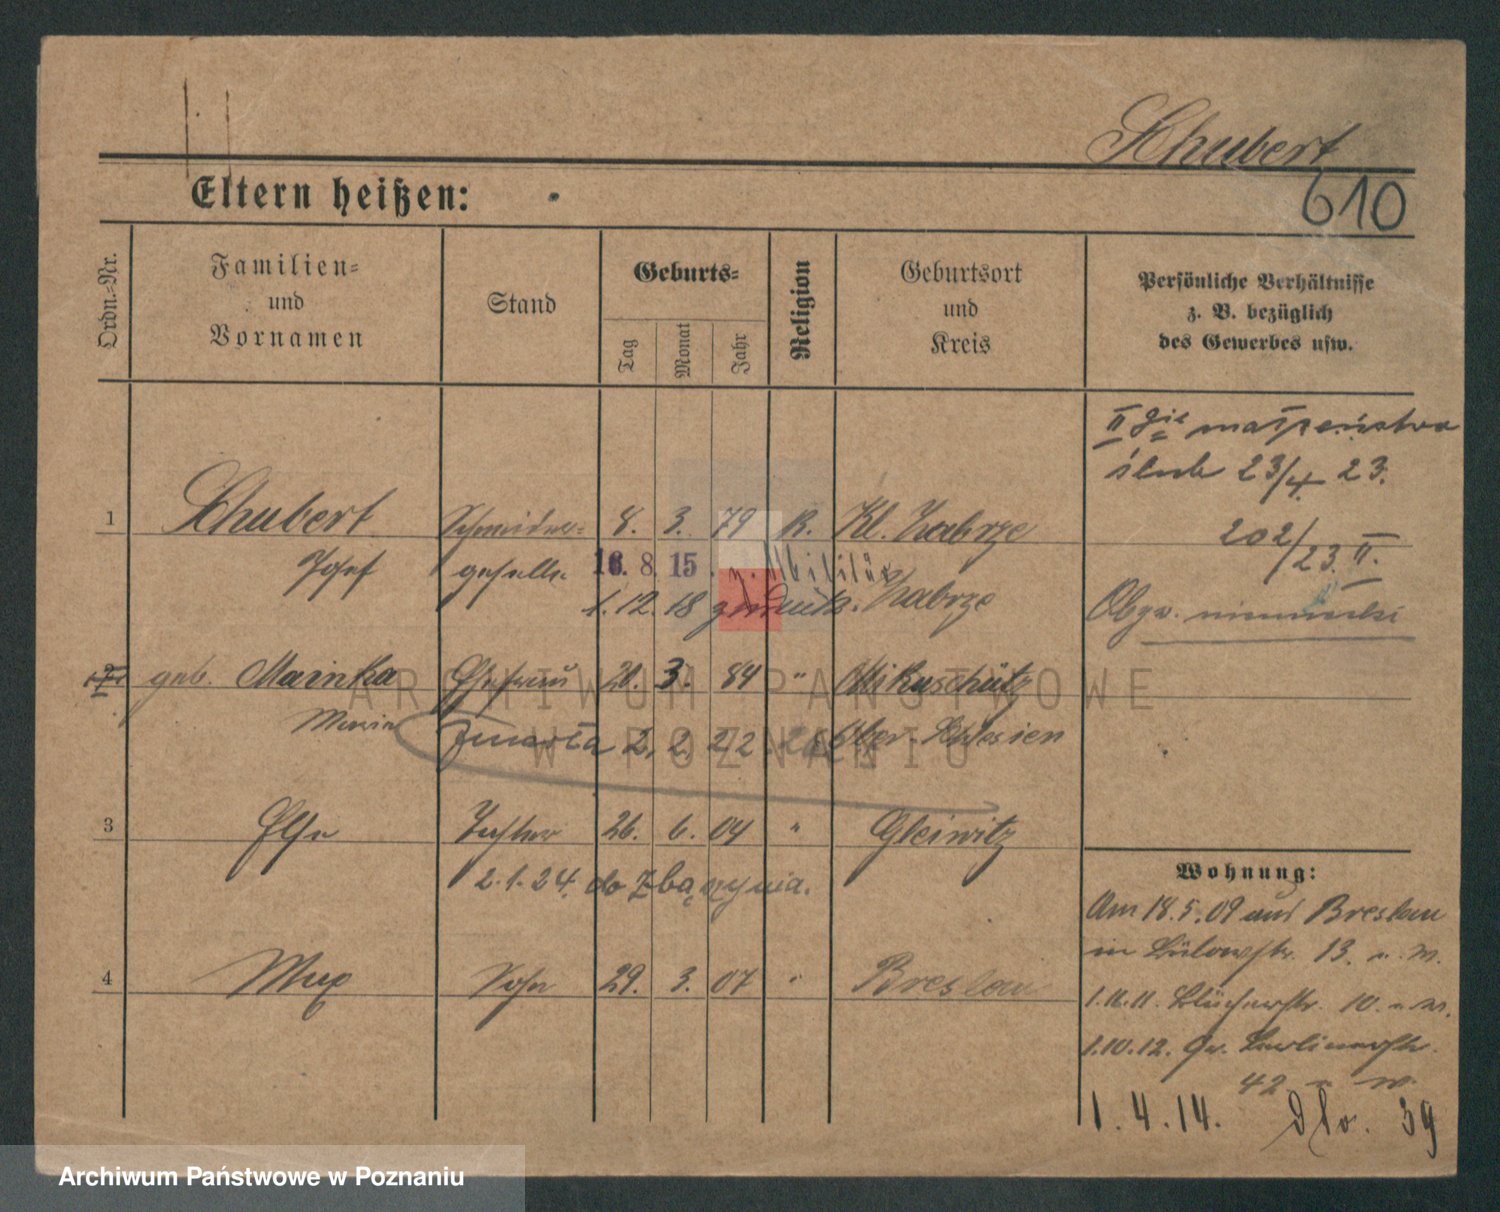 Schubert
610
Eltern heißen:
Ordn.-Nr.
Familien-
und
Vornamen
Stand
Geburts-
Tag
Monat
Jahr
Religion
Geburtsort
und
Kreis
Persönliche Verhältnisse
z. B. bezüglich
des Gewerbes usw.
II małżeństwa
ślub 23/4 23.
1 Schubert Schneider- 8. 3. 79 K. Kl. Zabrze
202/23 II.
Josef geselle 16. 8. 15. z. Militär
1.12.18 zurück. Zabrze
Obyw. niemiecki
2 geb. Mainka Ehefrau 20. 3. 84 " Mikuschütz
Maria zmarła 2. 2. 22. Ober-Schlesien
3 Else Tochter 26. 6. 04 " Gleiwitz
2.1.24. do Zbąszynia.
Wohnung:
Am 18.5.09 aus Breslau
in Bülowstr. 13. n. W.
4 Max Sohn 29. 3. 07 " Breslau
1.11. Blücherstr. 10. n. W.
1.10.12. Gr. Berlinerstr.
42 n W.
1.4.14. dto. 39
ARCHIWUM PAŃSTWOWE
W POZNANIU
Archiwum Państwowe w Poznaniu